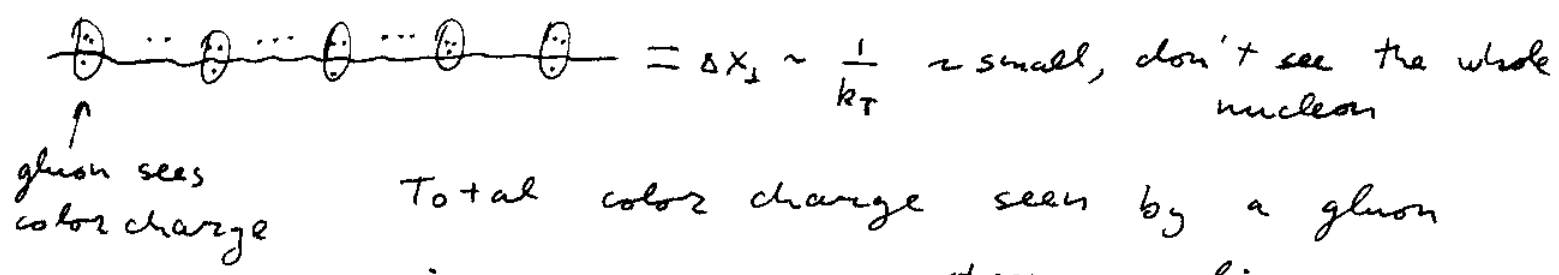 = Δx⊥ ~ 1/k_T ~ small, don't see the whole
nucleon
gluon sees
color charge
Total color charge seen by a gluon